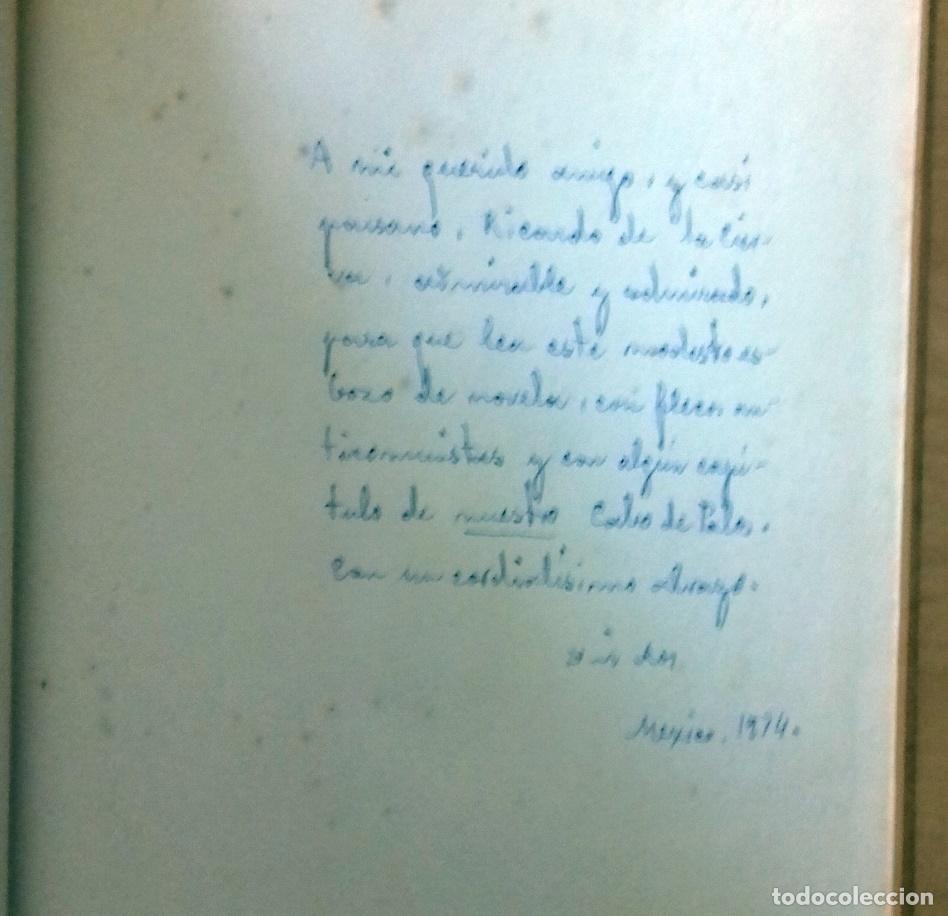 A mi querido amigo, y casi
paisano, Ricardo de la Cier-
va, admirable y admirado,
para que lea este modesto es-
bozo de novela, con flecos an-
ticomunistas y con algún capí-
tulo de nuestro Cabo de Palos.
Con un cordialísimo abrazo.
México, 1974.
todocoleccion